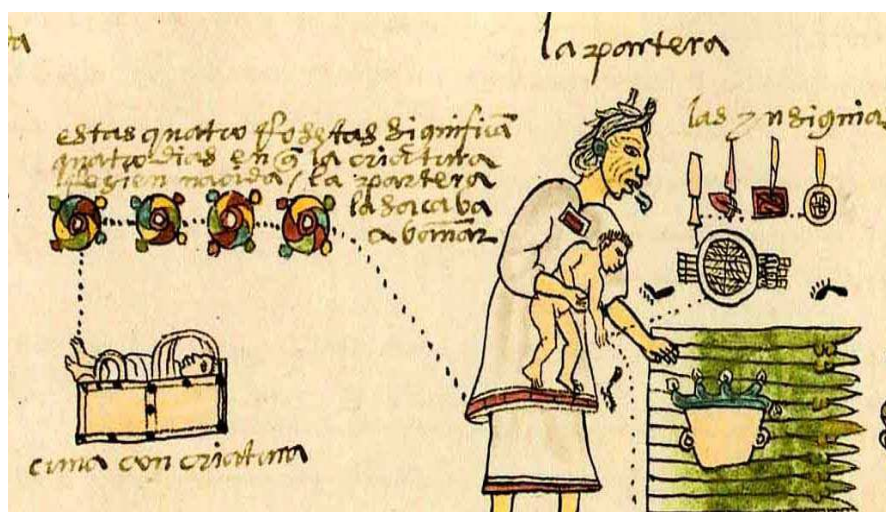 da
la partera
estas quatro rosetas significā
quatro dias en q̄ la criatura
rezien nacida / la partera
la sacaba
a bañar
las ynsignias
cuna con criatura